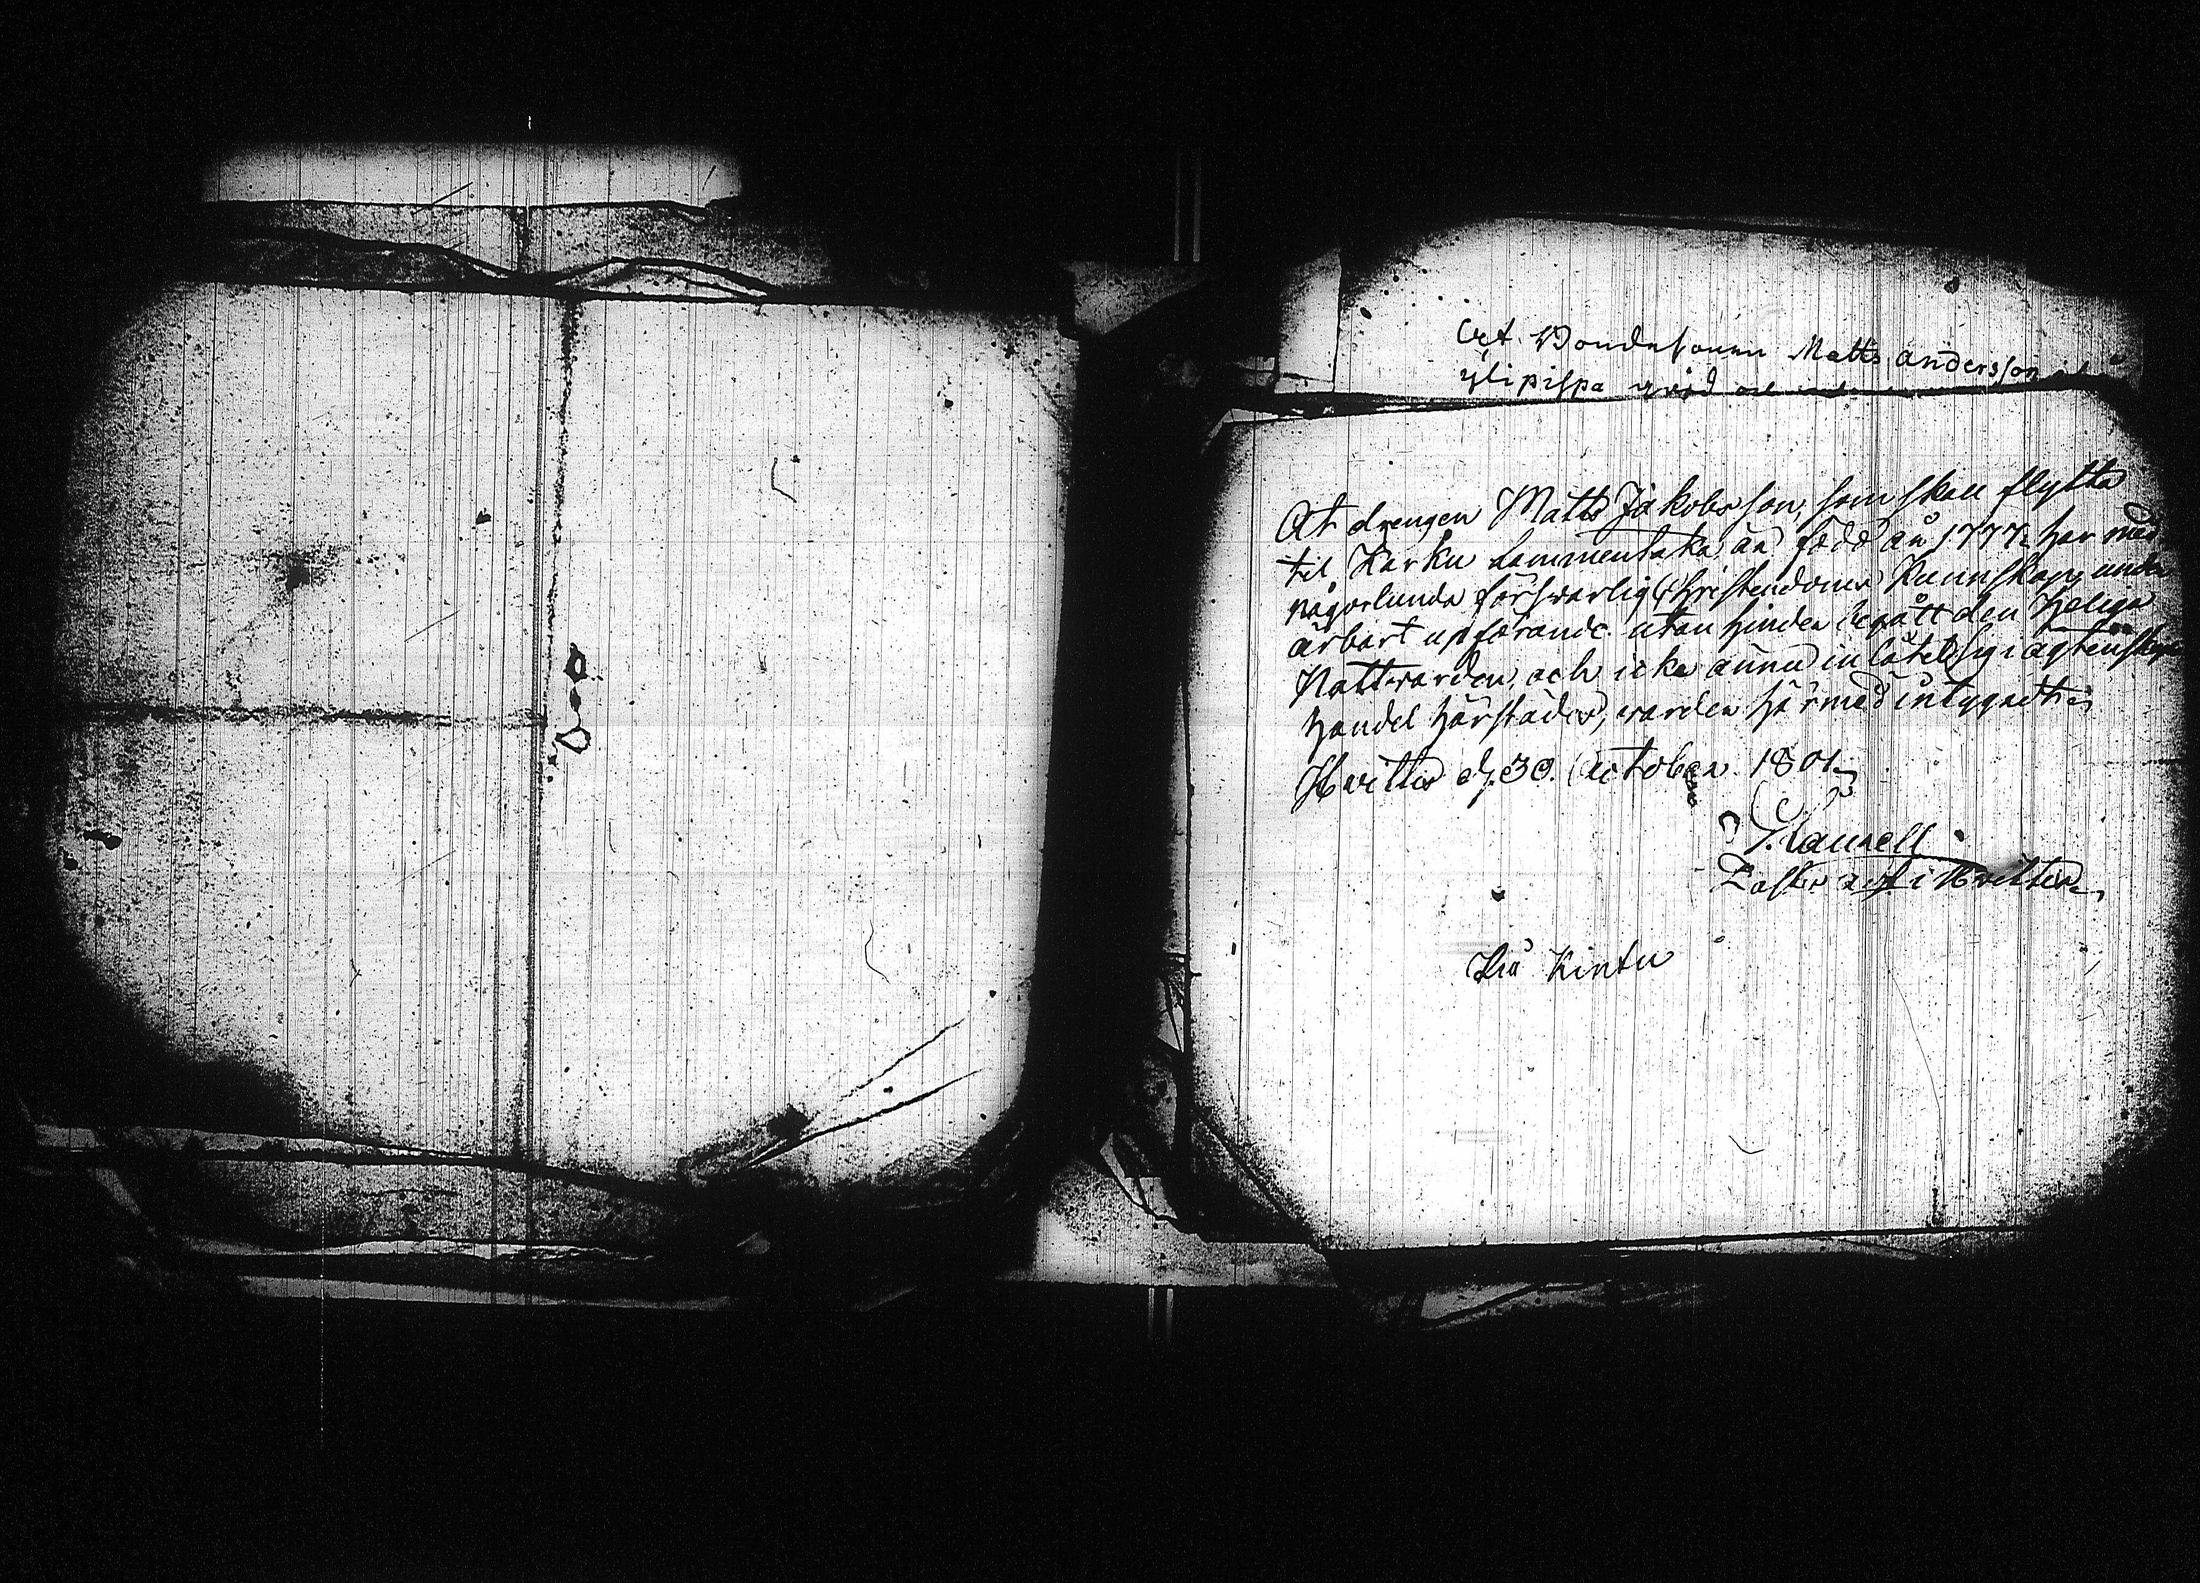 At Bondesonen Matts Andersson
ylipispa
At drengen Matts Jakobsson, som skall flytta
til Karku Lammentaka är född år 1777. har med
någorlunda försvarlig Christendoms Kunnskap, under
ärbart upförande utan hinder begått den Heliga
Nattvarden, och icke ännu inlåtet sig i ägtenskaps
handel härstädes, warder härmed intygadt;
Hvittis d. 30. October 1801.
Past: i Hvittis.
Kintu